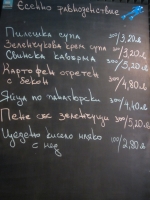 Есенно равноденствие
Пилешка супа 300/3,20лв
Зеленчукова крем супа 300/3,20лв
Свинска кавърма 300/5,20лв
Картофен огретен с бекон 300/4,80лв
Яйца по панагюрски 300/4,40лв
Пене със зеленчуци 300/5,20лв
Цедено кисело мляко с мед 200/2,80лв